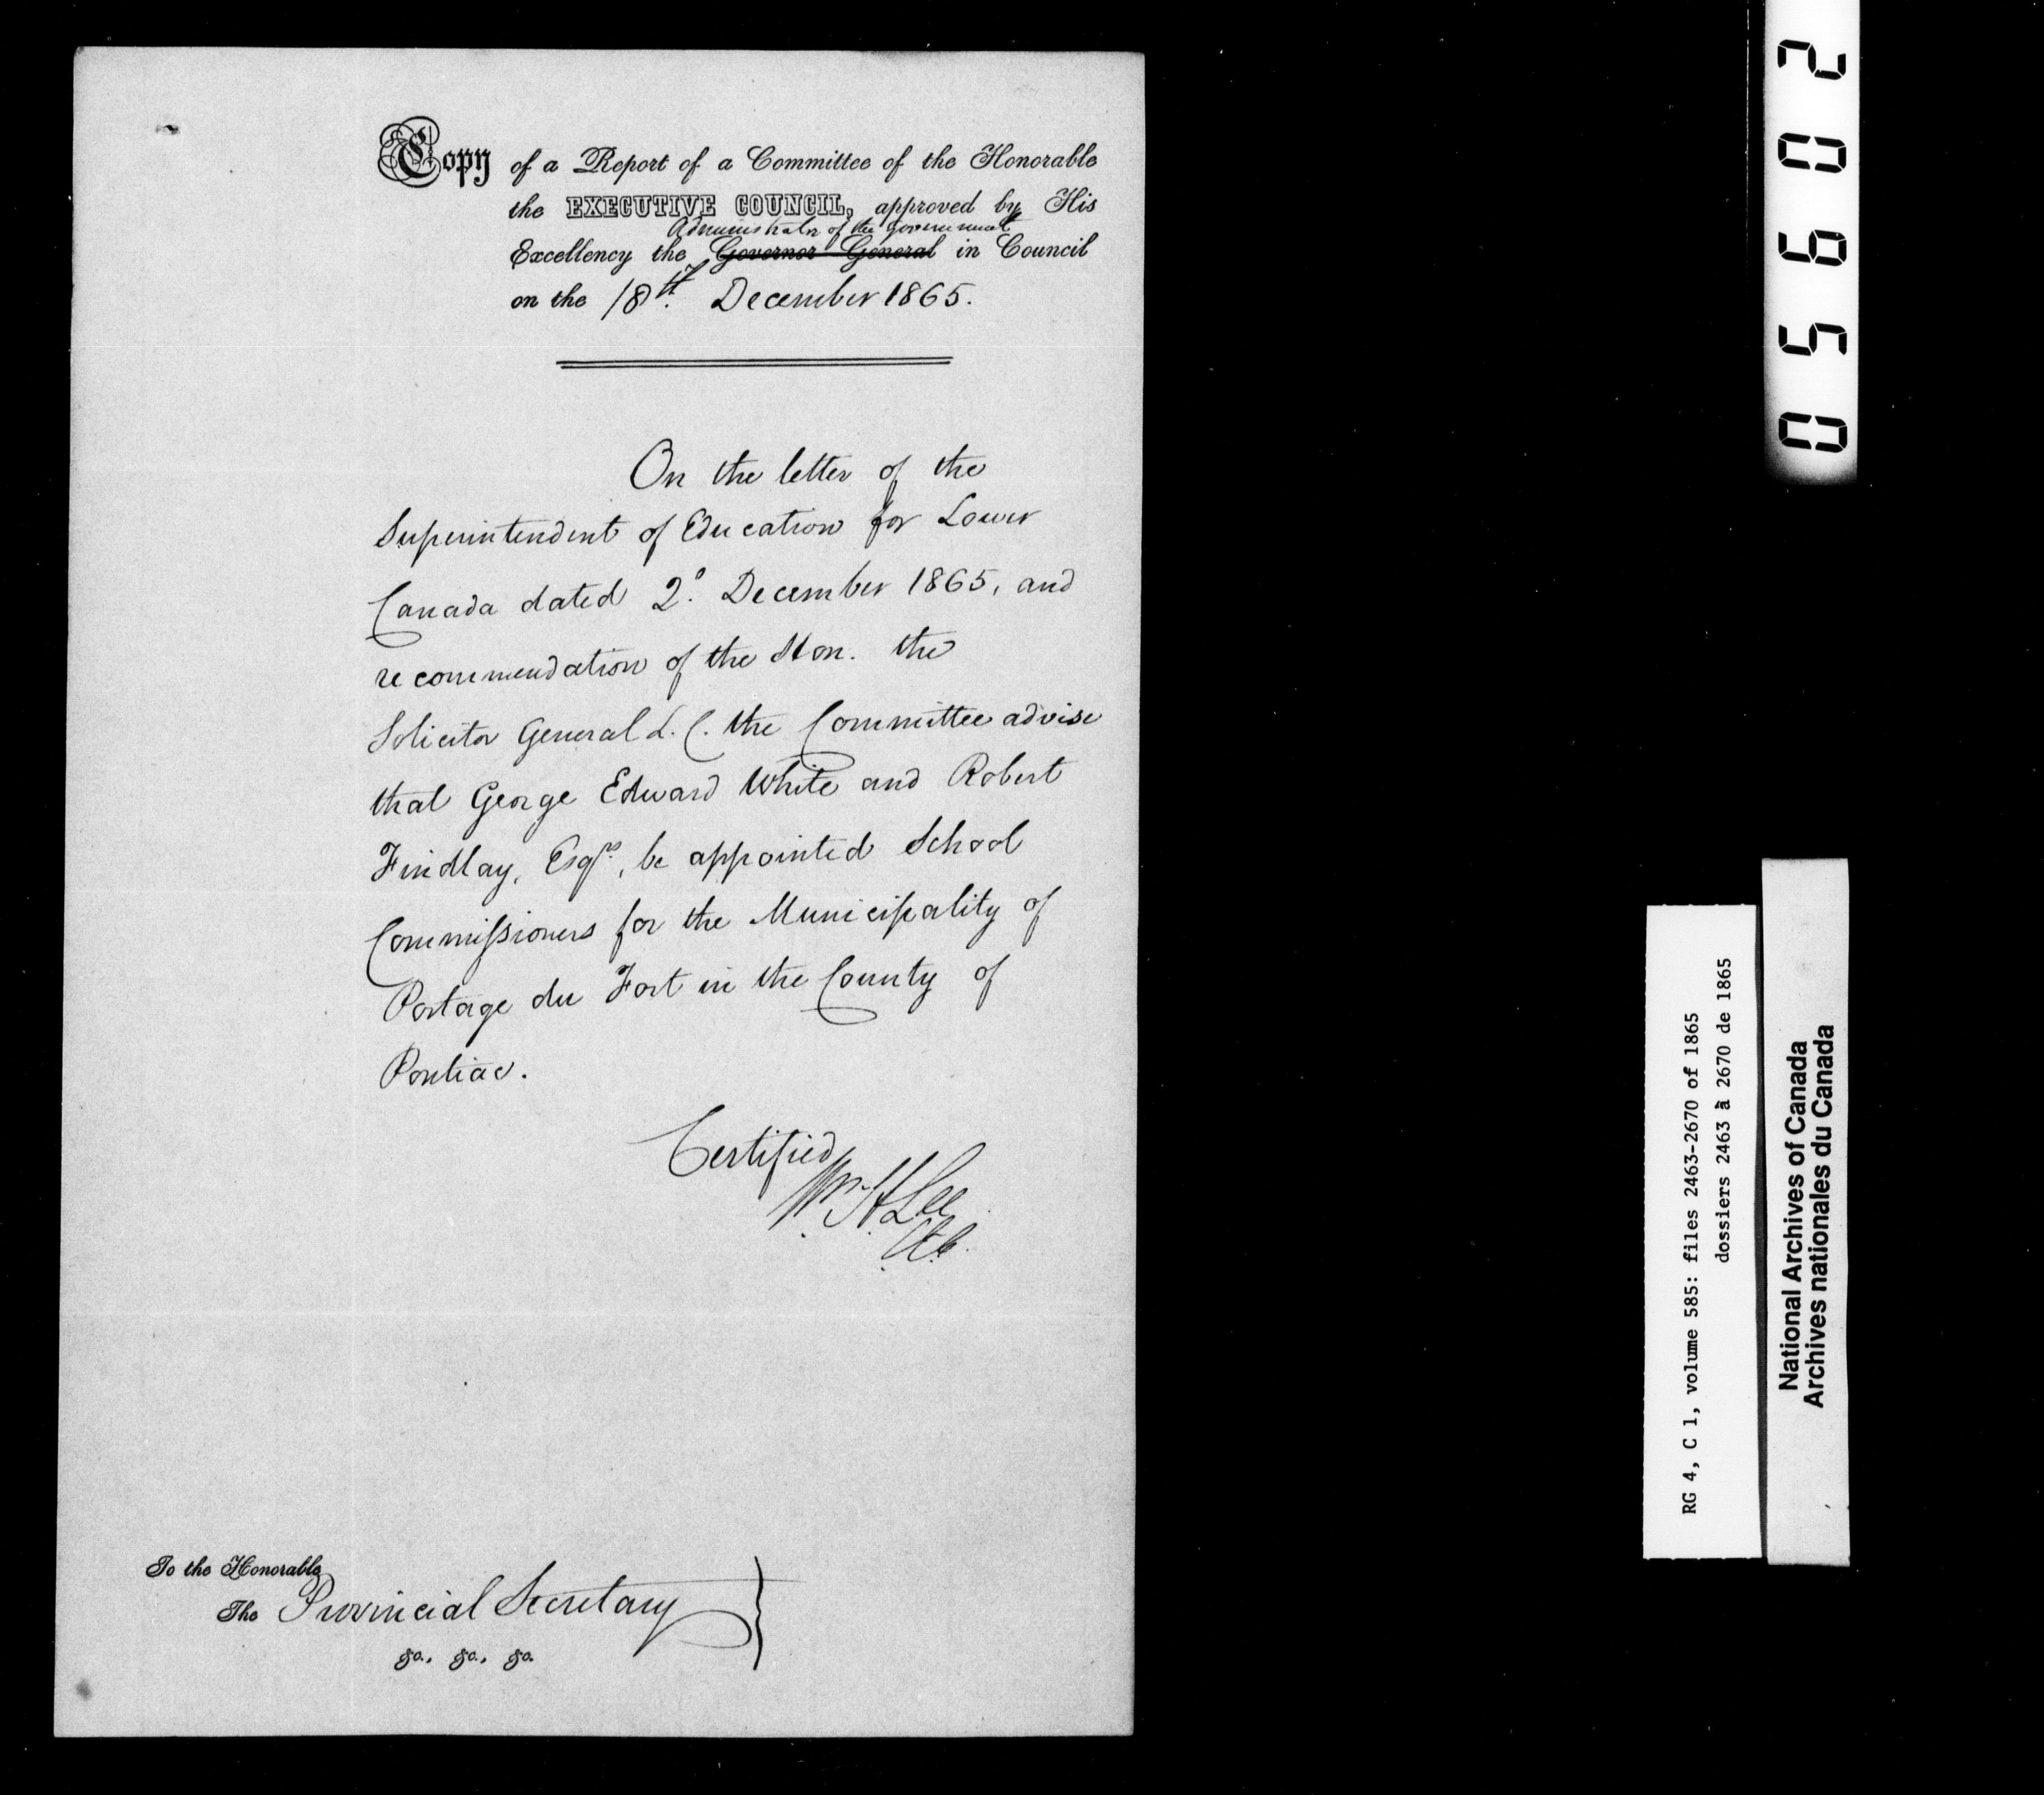 Copy of a Report of a Committee of the Honorable
the EXECUTIVE COUNCIL, approved by His
Administrator of the Government
Excellency the Governor General in Council
on the 18th. December 1865.
On the letter of the
Superintendent of Education for Lower
Canada dated 2º. December 1865, and
recommendation of the Hon. the
Solicitor General L. C. the Committee advise
that George Edward White and Robert
Findlay, Esqrs, be appointed School
Commissioners for the Municipality of
Portage du Fort in the County of
Pontiac.
Certified
Wm. H Lee
To the Honorable
The Provincial Secretary
&c., &c., &c.
0 5 6 0 2
RG 4, C 1, volume 585: files 2463-2670 of 1865
dossiers 2463 à 2670 de 1865
National Archives of Canada
Archives nationales du Canada